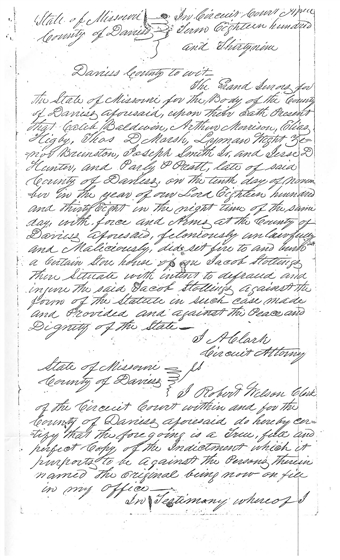 State of Missouri } In Circuit Court April
County of Daviess } Term Eighteen hundred
and Thirtynine
Daviess County to wit
The Grand Jurors for
the State of Missouri for the Body of the County
of Daviess aforesaid, upon their oath Present
that Caleb Baldwin, Arthur Morrison, Elias
Higby, Thos D Marsh, Lyman Wight
Brunston, Joseph Smith Sr, and Jesse D
Hunter, and Parly P Pratt, late of said
County of Daviess, on the tenth day of Novem
ber in the year of our Lord Eighteen hundred
and thirty Eight in the night time of the same
day, with force and Arms, at the County of
Daviess aforesaid, feloniously unlawfully
and Maliciously, did set fire to and burn
a Certain Store house of Jacob Stollings
there Situate with intent to defraud and
injure the said Jacob Stollings against the
form of the Statute in such case made
and Provided and against the Peace and
Dignity of the State
J A Clark
Circuit Attorney
State of Missouri }
County of Daviess } ss
I Robert Wilson Clerk
of the Circuit Court within and for the
County of Daviess aforesaid do hereby cer-
tify that the foregoing is a True, full and
perfect Copy of the Indictment which it
purports to be against the Persons therein
named the original being now on file
in my office
In Testimony whereof I